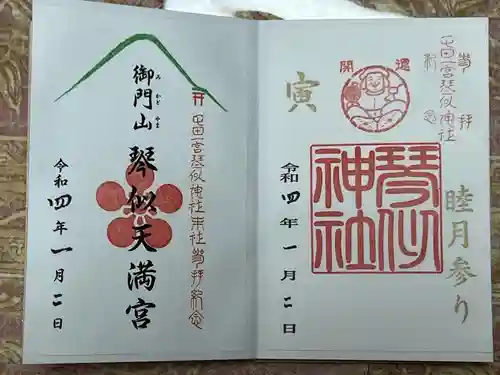 参拝
一宮琴似神社
紀念
睦月参り
開運
琴似
神社
寅
令和四年一月二日
一宮琴似神社末社参拝紀念
御門山 琴似天満宮
みかどやま
令和四年一月二日